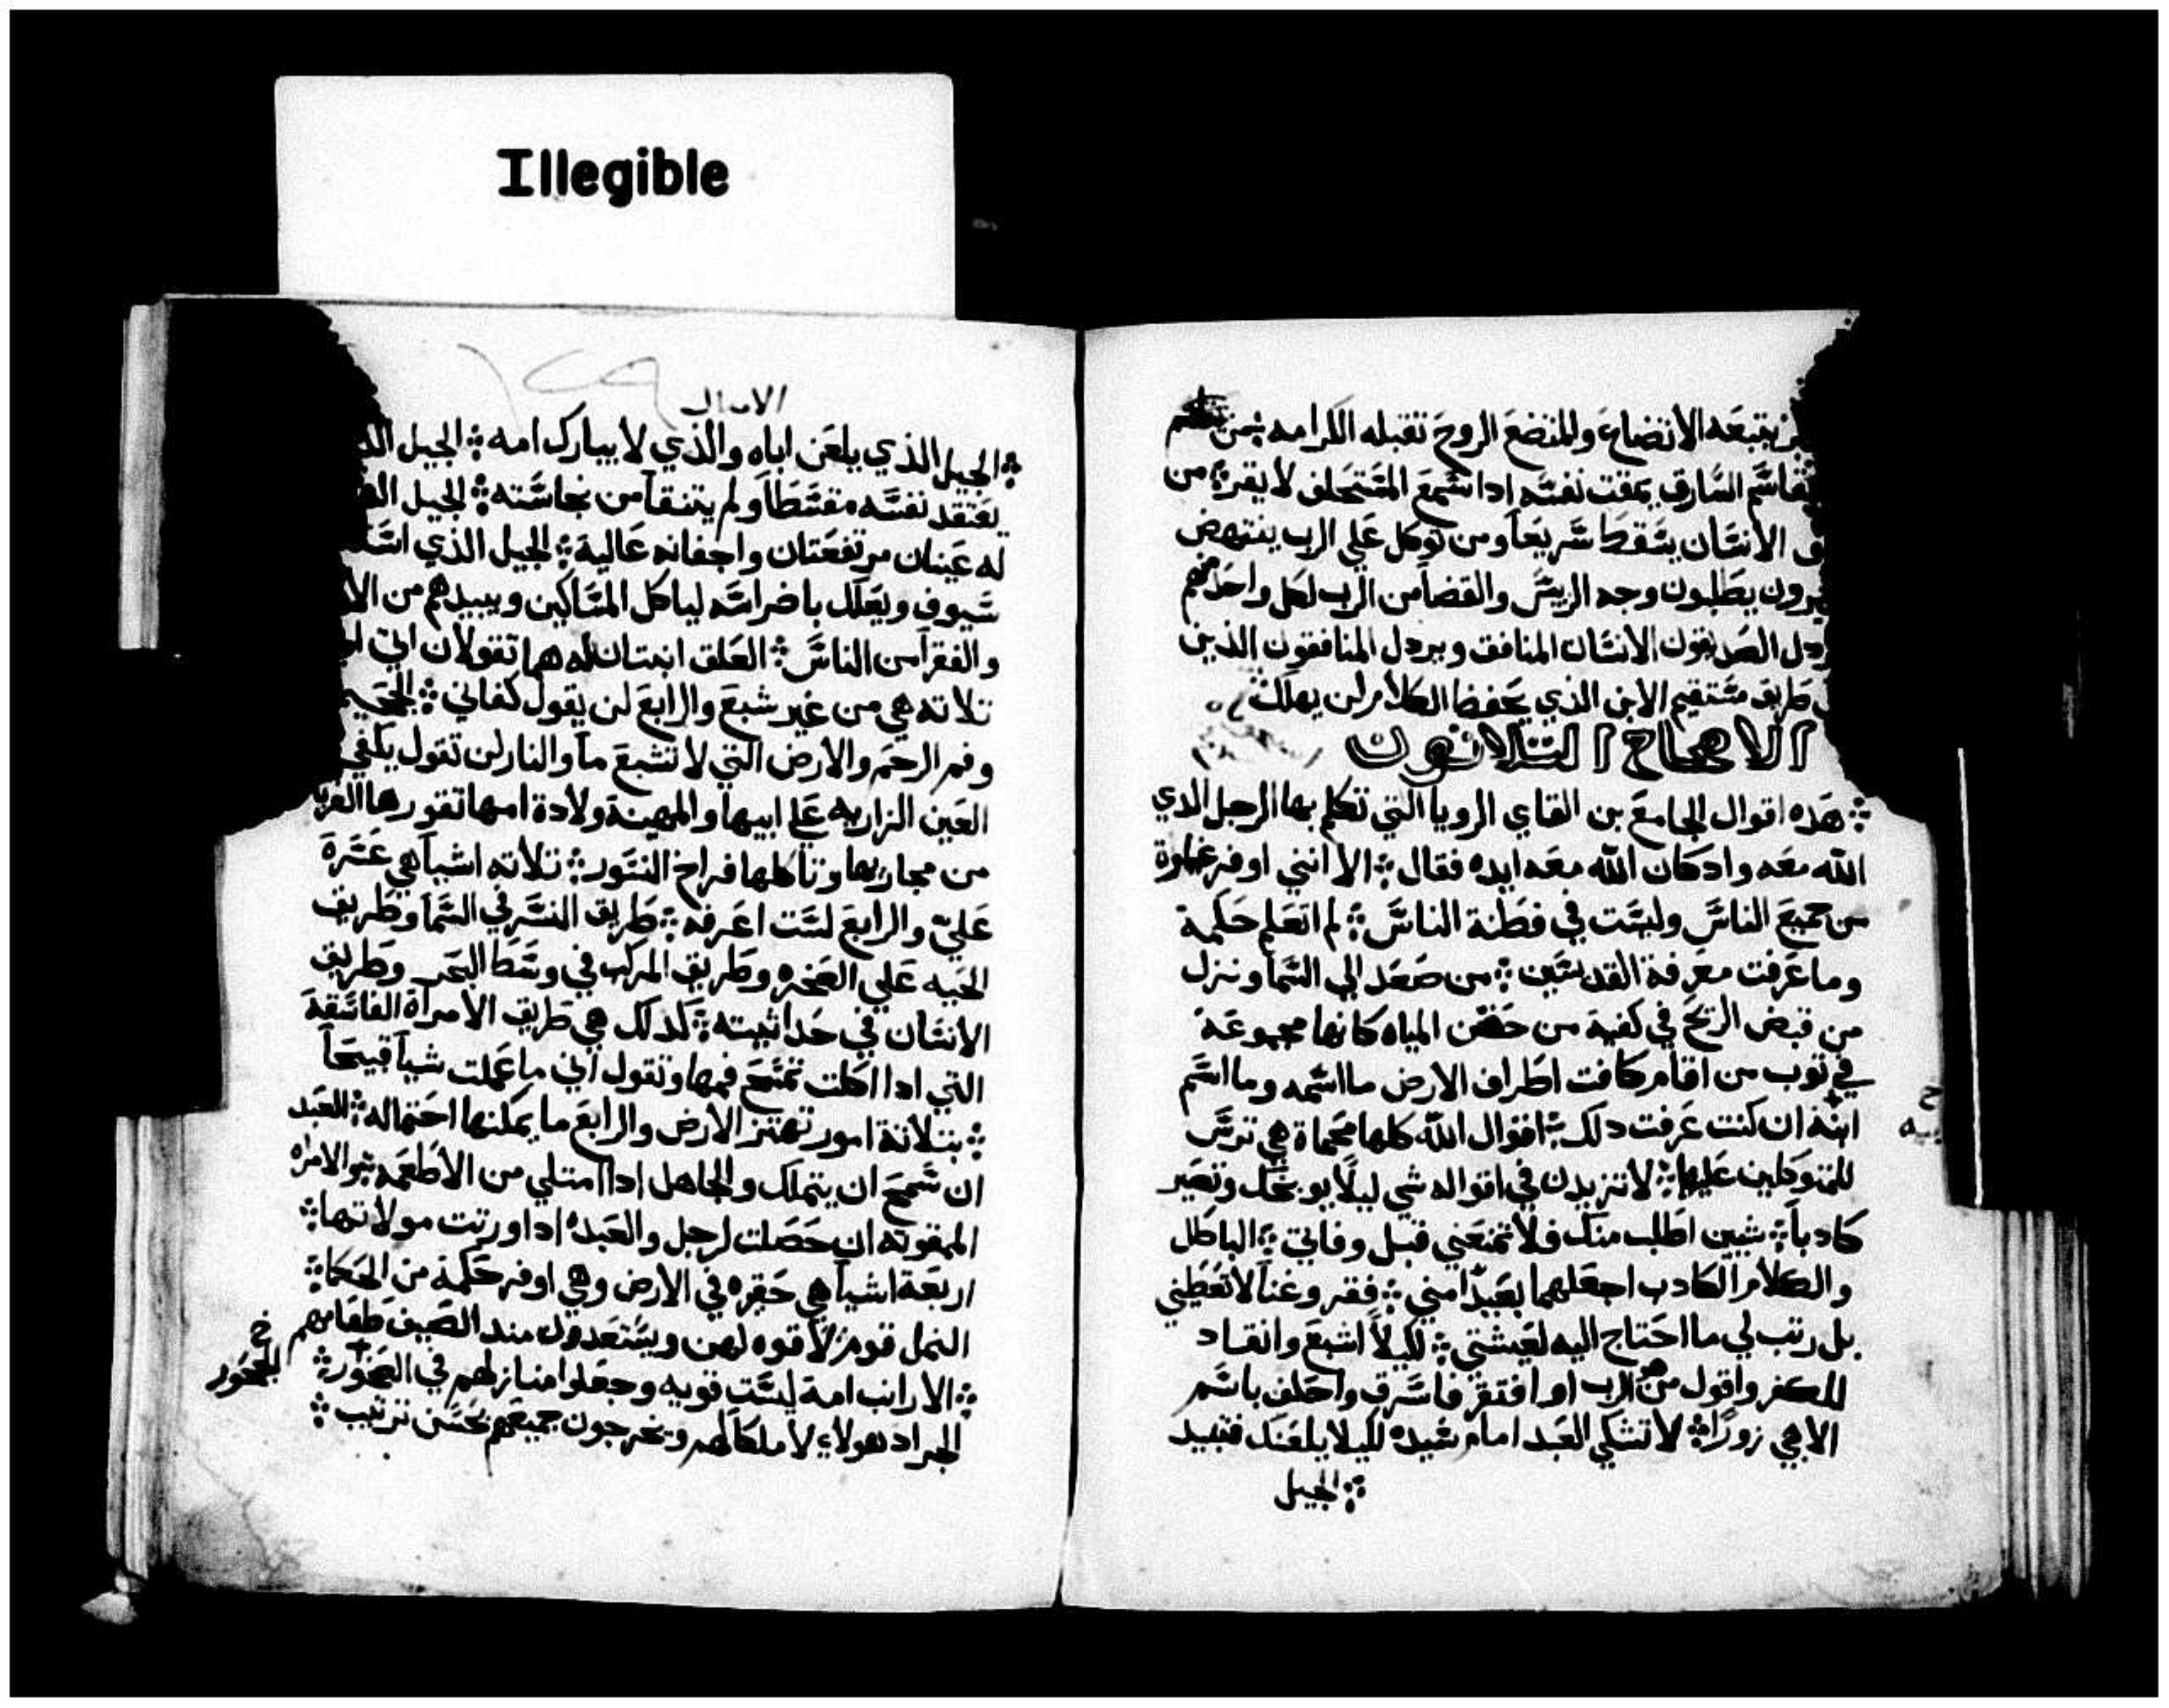 Illegible
يتبعه الاتضاع والمتضع الروح تقبله الكرامه ܀ من
يقاسم السارق يمقت نفسه ادا سمع المستحلف لا يقر ܀ من
الانسان يسقط سريعاً ومن توكل علي الرب ينتهض
يطلبون وجه الريس والقضا من الرب لكل واحد منهم
الصديقون الانسان المنافق ويردل المنافقون الذين
طريق مستقيم الابن الذي يحفض الكلام لن يهلك
الاصحاح التلاتون
܀ هده اقوال الجامع بن القاي الرويا التي تكلم بها الرجل الدي
الله معه واد كان الله معه ايده فقال ܀ الا انني اوفر غباوة
من جميع الناس وليست في فطنة الناس ܀ لم اتعلم حكمة
وما عرفت معرفة القديسين ܀ من صعد الي السما ونزل
من قبض الريح في كفيه من حقن المياه كانها مجموعة
في توب من اقام كافت اطراف الارض ما اسمه وما اسم
ابنه ان كنت عرفت دلك ܀ اقوال الله كلها محماة هي ترس
للمتوكلين عليها ܀ لا تزيدن في اقواله شي ليلا يوبخك وتصير
كادباً ܀ شيين اطلب منك فلا تمنعني قبل وفاتي ܀ الباطل
والكلام الكادب اجعلهما بعيداً مني ܀ فقر وغنا لا تعطيني
بل رتب لي ما احتاج اليه لعيشتي ܀ لكيلا اشبع وانقاد
للكفر واقول من هو الرب او افتقر فاسرق واحلف باسم
الاهي زوراً ܀ لا تشكي العبد امام سيده لكيلا يلعنك فتبيد
܀ الجيل
الامتال
܀ الجيل الذي يلعن اباه والذي لا يبارك امه ܀ الجيل
يعتقد نفسه مقسطاً ولم يتنقا من نجاسته ܀ الجيل
له عينان مرتفعتان واجفانه عالية ܀ الجيل الذي
سيوف ويعلك باضراسه لياكل المساكين ويبيدهم من
والفقرا من الناس ܀ العلق ابنتان له هما تقولان
تلاته هي من غير شبع والرابع لن يقول كفاني ܀
وفم الرحم والارض التي لا تشبع ما والنار لن تقول يكفي
العين الزاريه علي ابيها والمهينة ولادة امها تقورها
من مجاريها وتاكلها فراخ النسور ܀ تلاته اشيا هي عسرة
علي والرابع لست اعرفه ܀ طريق النسر في السما وطريق
الحيه علي الصخره وطريق المركب في وسط البحر وطريق
الانسان في حداثيته ܀ كدلك هي طريق الامراة الفاسقة
التي ادا اكلت تمسح فمها وتقول اني ما عملت شيا قبيحاً
܀ بتلاتة امور تهتز الارض والرابع ما يمكنها احتماله ܀ العبد
ان سمح ان يتملك والجاهل ادا امتلي من الاطعمه ܀ والامراه
الممقوته ان حصلت لرجل والعبده ادا ورتت مولاتها ܀
اربعة اشيا هي حقيره في الارض وهي اوفر حكمة من الحكما ܀
النمل قوم لا قوه لهن ويستعدون مند الصيف طعامهم
܀ الارانب امة ليست قويه وجعلوا منازلهم في الصخور ܀
الجراد هولاء لا ملكا لهم ويخرجون جميعهم بحسن ترتيب ܀